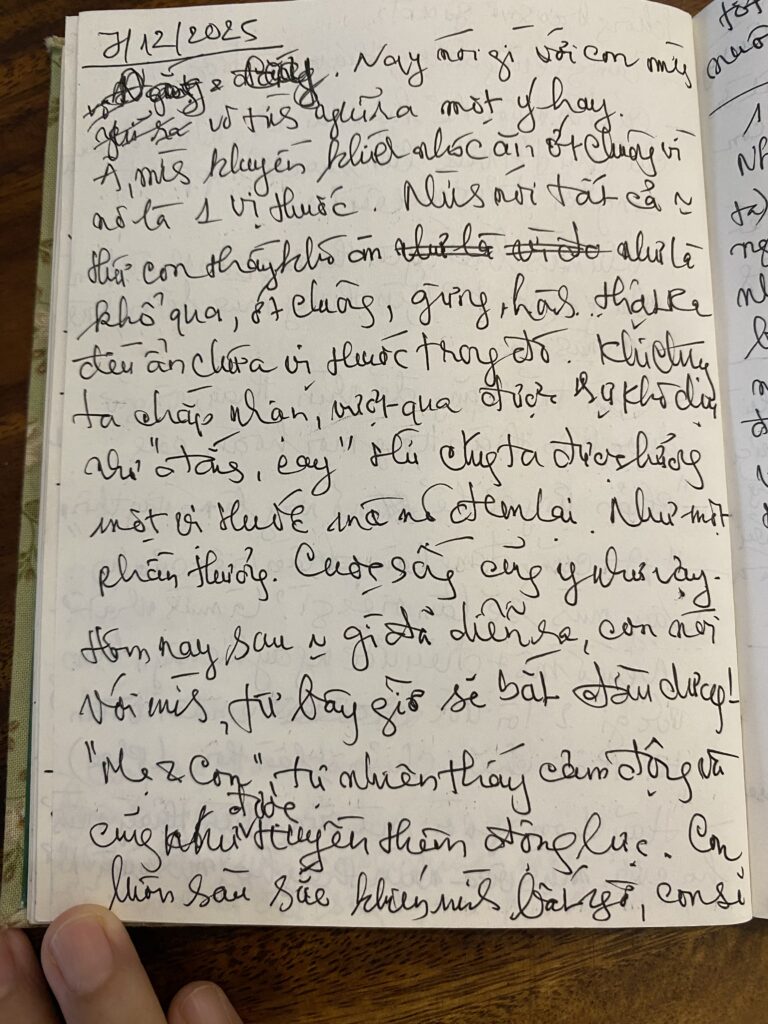 7/12/2025
Nay nói gì với con mis
vô tis nghĩ ra một ý hay.
A, mis khuyến khích nhóc ăn ớt chuông vì
nó là 1 vị thuốc. Mis nói tất cả ~
thứ con thấy khó ăn như là
khổ qua, ớt chuông, gừng, hàs.. thật ra
đều ẩn chứa vị thuốc trong đó. Khi chúng
ta chấp nhận, vượt qua được sự khó chịu
như "đắng, cay" thì chúng ta được hưởng
một vị thuốc mà nó đem lại. Như một
phần thưởng. Cuộc sống cũng y như vậy.
Hôm nay sau ~ gì đã diễn ra, con nói
với mis, từ bây giờ sẽ bắt đầu dùng!
"Mẹ & Con", tự nhiên thấy cảm động và
cũng như được truyền thêm động lực. Con
luôn sâu sắc khiến mis bất ngờ, con sẽ
tớ
muố
1
Nh
ta)
ng